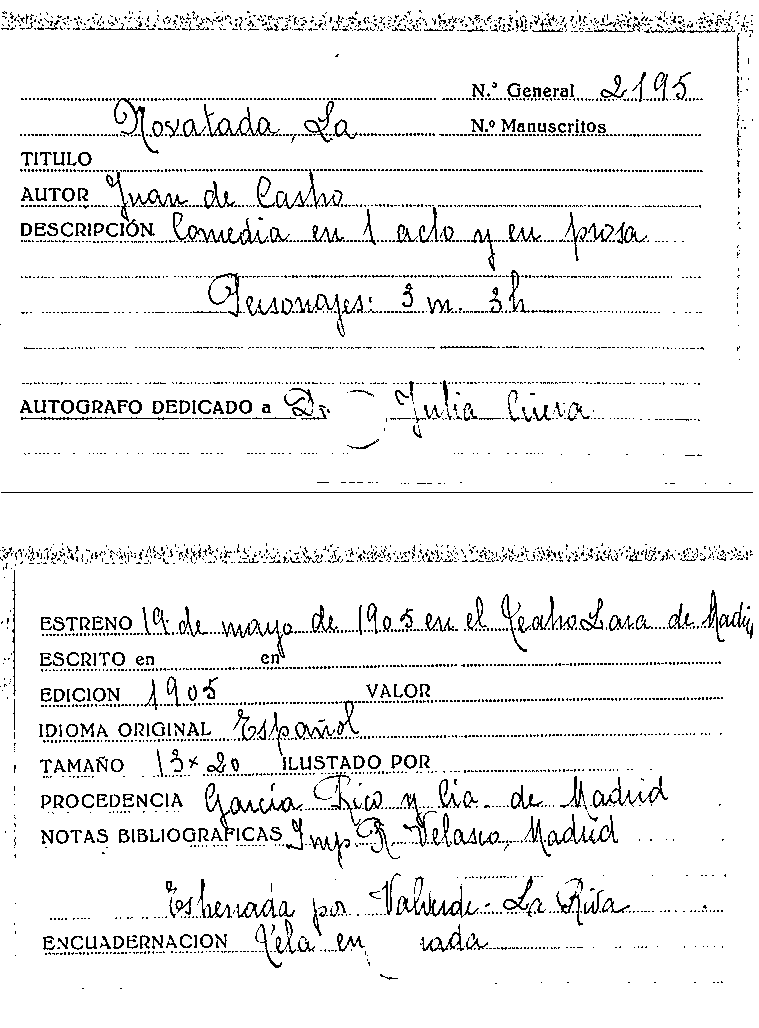 N.º General 2195
Novatada, La N.º Manuscritos
TITULO
AUTOR Juan de Castro
DESCRIPCIÓN Comedia en 1 acto y en prosa
Personajes: 3 m. 3h
AUTOGRAFO DEDICADO a Dr. Julia Cueva
ESTRENO 19 de mayo de 1905 en el Teatro Lara de Madri
ESCRITO en en
EDICION 1905 VALOR
IDIOMA ORIGINAL Español
TAMAÑO 13 x 20 ILUSTADO POR
PROCEDENCIA García Rico y Cia. de Madrid
NOTAS BIBLIOGRAFICAS Imp. R. Velasco, Madrid
Estrenada por Valverde - La Riva
ENCUADERNACION Tela en